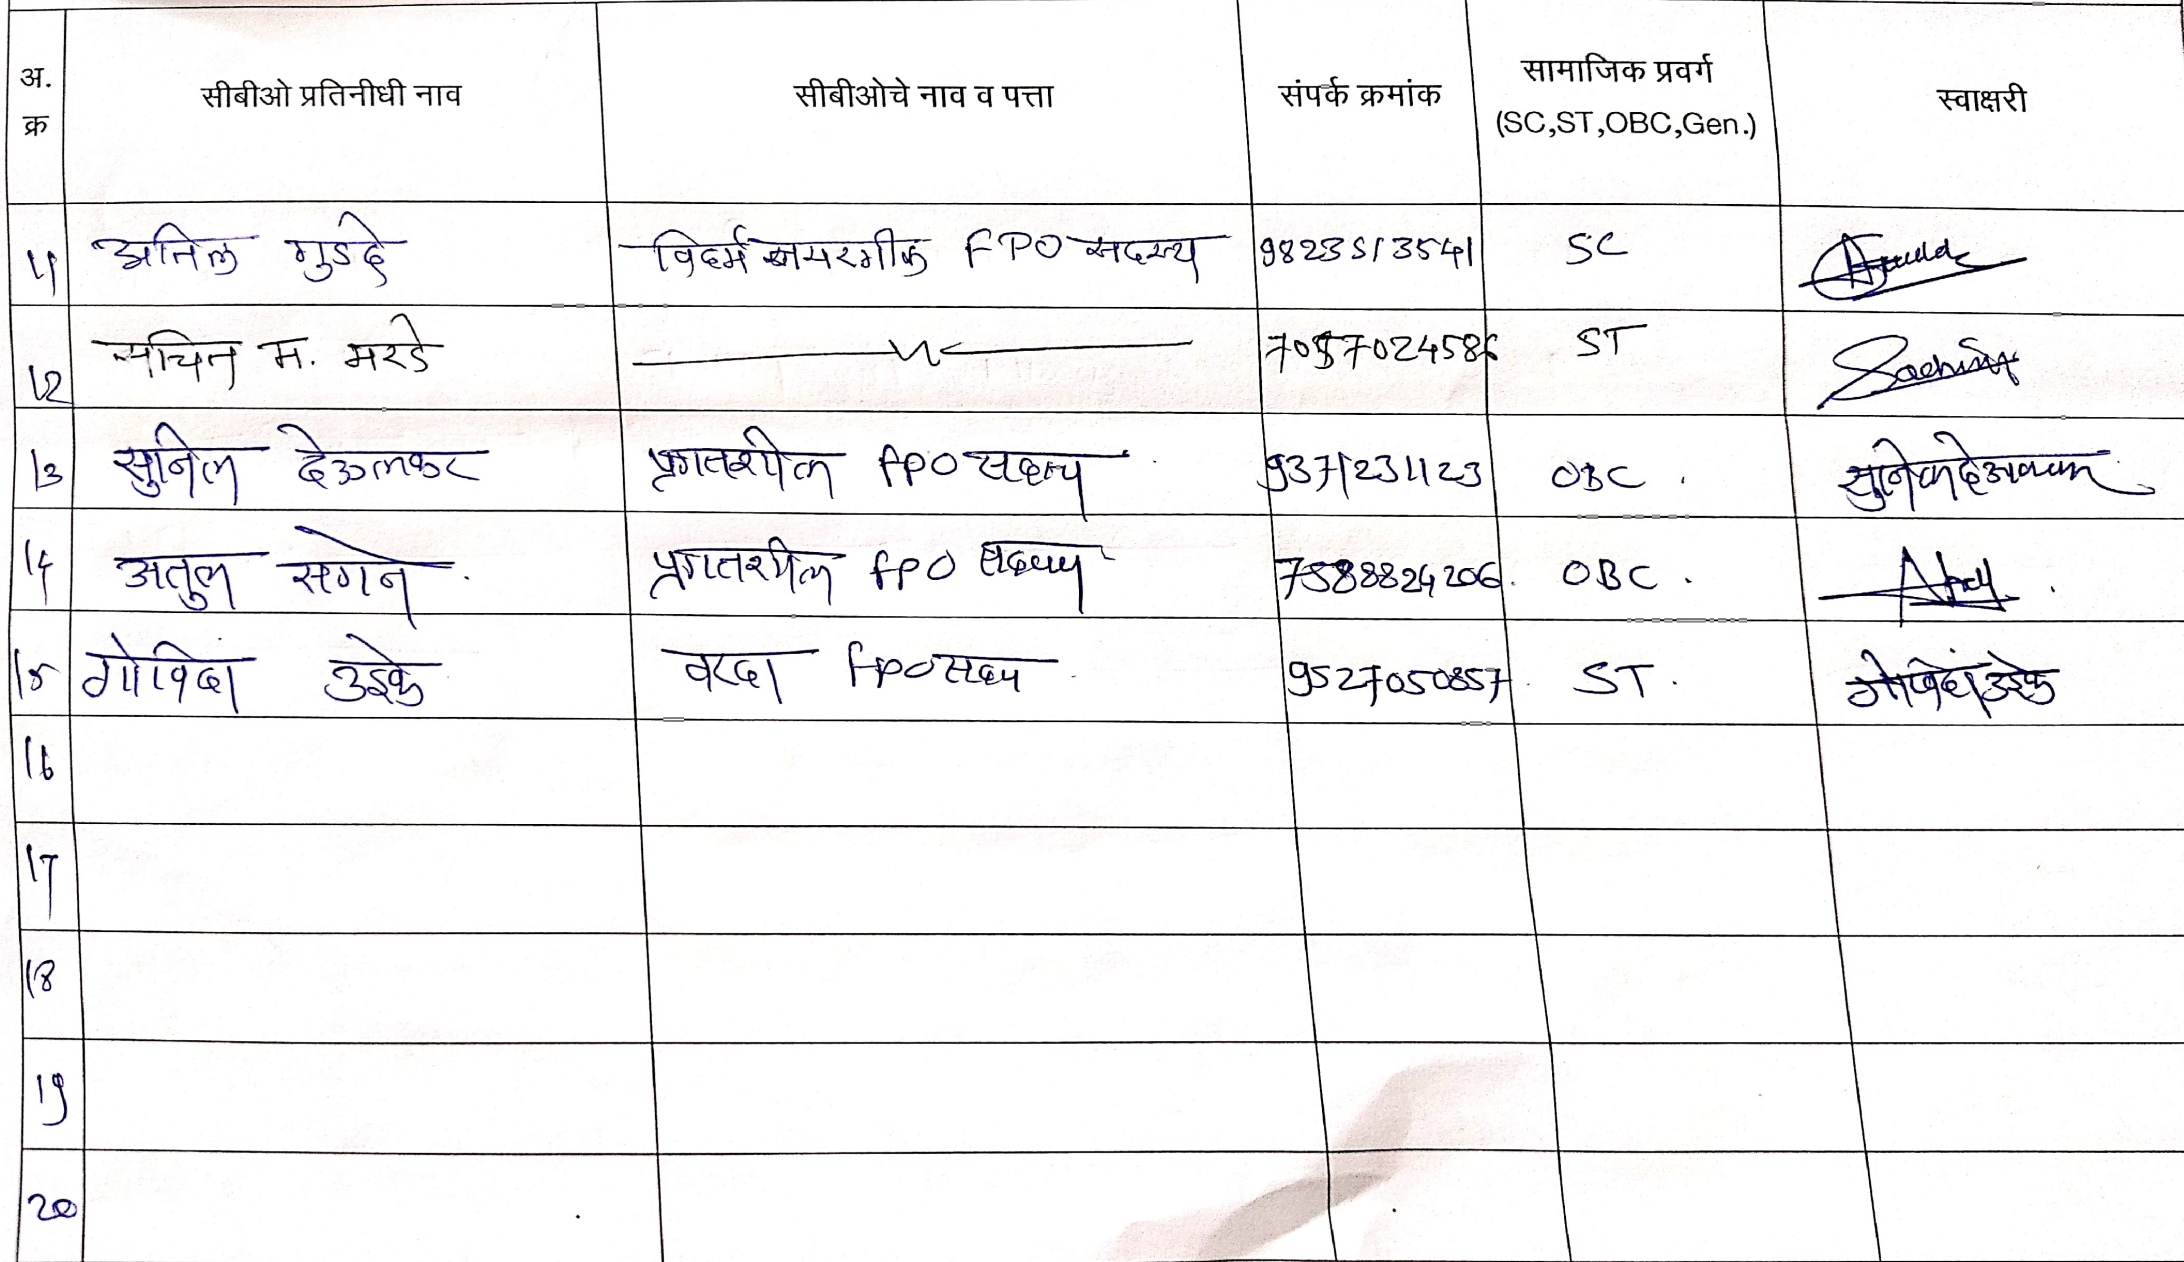 अ. क्र सीबीओ प्रतिनीधी नाव सीबीओचे नाव व पत्ता संपर्क क्रमांक सामाजिक प्रवर्ग (SC,ST,OBC,Gen.) स्वाक्षरी
11 अनिल गुडदे विदर्भ FPO सदस्य 9823513541 SC
12 सचिन म. मरडे 7057024586 ST Sachin
13 सुनिल देऊलकर प्रगतशील FPO सदस्य 9371231123 OBC .
14 अतुल सगने . प्रगतशील FPO सदस्य 7588824206 . OBC .
15 गोविंदा उइके वरदा FPO सदस्य 9527050857 . ST .
16
17
18
19
20